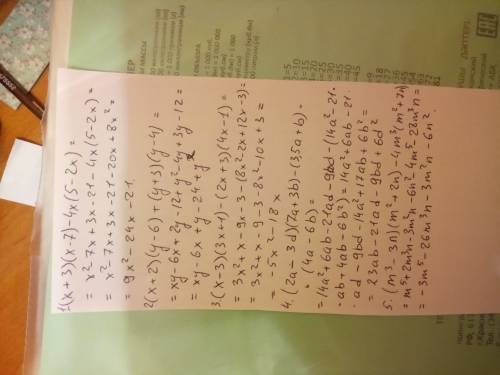 1(x+3)(x-7)-4x(5-2x)=
= x² 7x+3x-21-4x(5-2x)=
= x² 7x+3x-21-20x+8x²=
= 9x²-24x-21.
2(x+2)(y-6)+(y+3)(y-4)=
= xy-6x+2y-12+y² 4y+3y-12=
= xy-6x+y-24+y²
3.(x-3)(3x+1)-(2x+3)(4x-1)=
= 3x²+x-9x-3-(8x² 2x+12x-3)=
= 3x²+x-9-3-8x²-10x+3=
= -5x²-18x
4.(2a-3d)(7a+3b)-(3,5a+b)·
·(4a-6b)=
=14a²+6ab-21ad-9bd-(14a²-21·
·ab+4ab-6b²)=14a²+6ab-21·
·ad-9bd-14a²+17ab+6b²=
= 23ab-21ad-9bd+6b²
5.(m³-3n)(m²+2n)-4m³(m²+7n)
= m⁵+2m³n-3m²n-6n² 4m⁵ 28m³n=
= -3m⁵-26m³n-3m²n-6n².